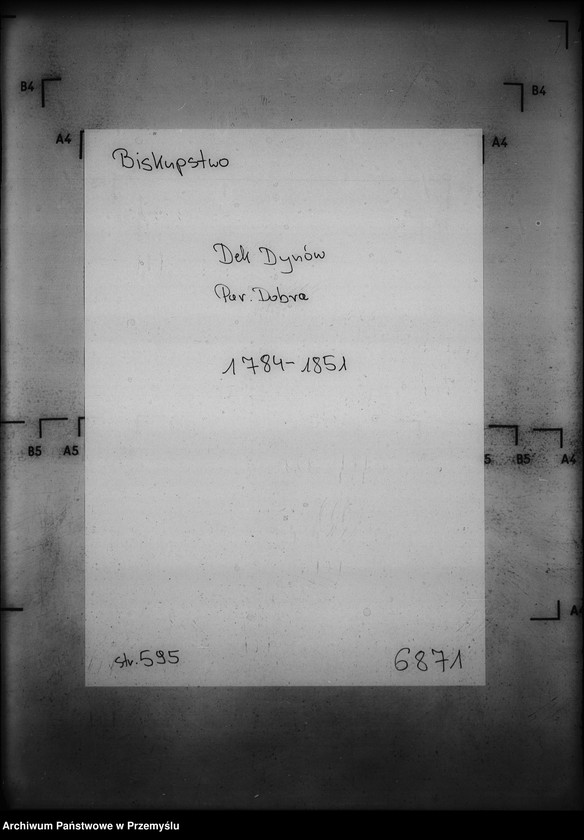 B4
B4
A4
A4
Biskupstwo
Dek Dynów
Par. Dobra
1784-1851
B5 A5
5 B5 A4
A
str. 595
6871
Archiwum Państwowe w Przemyślu